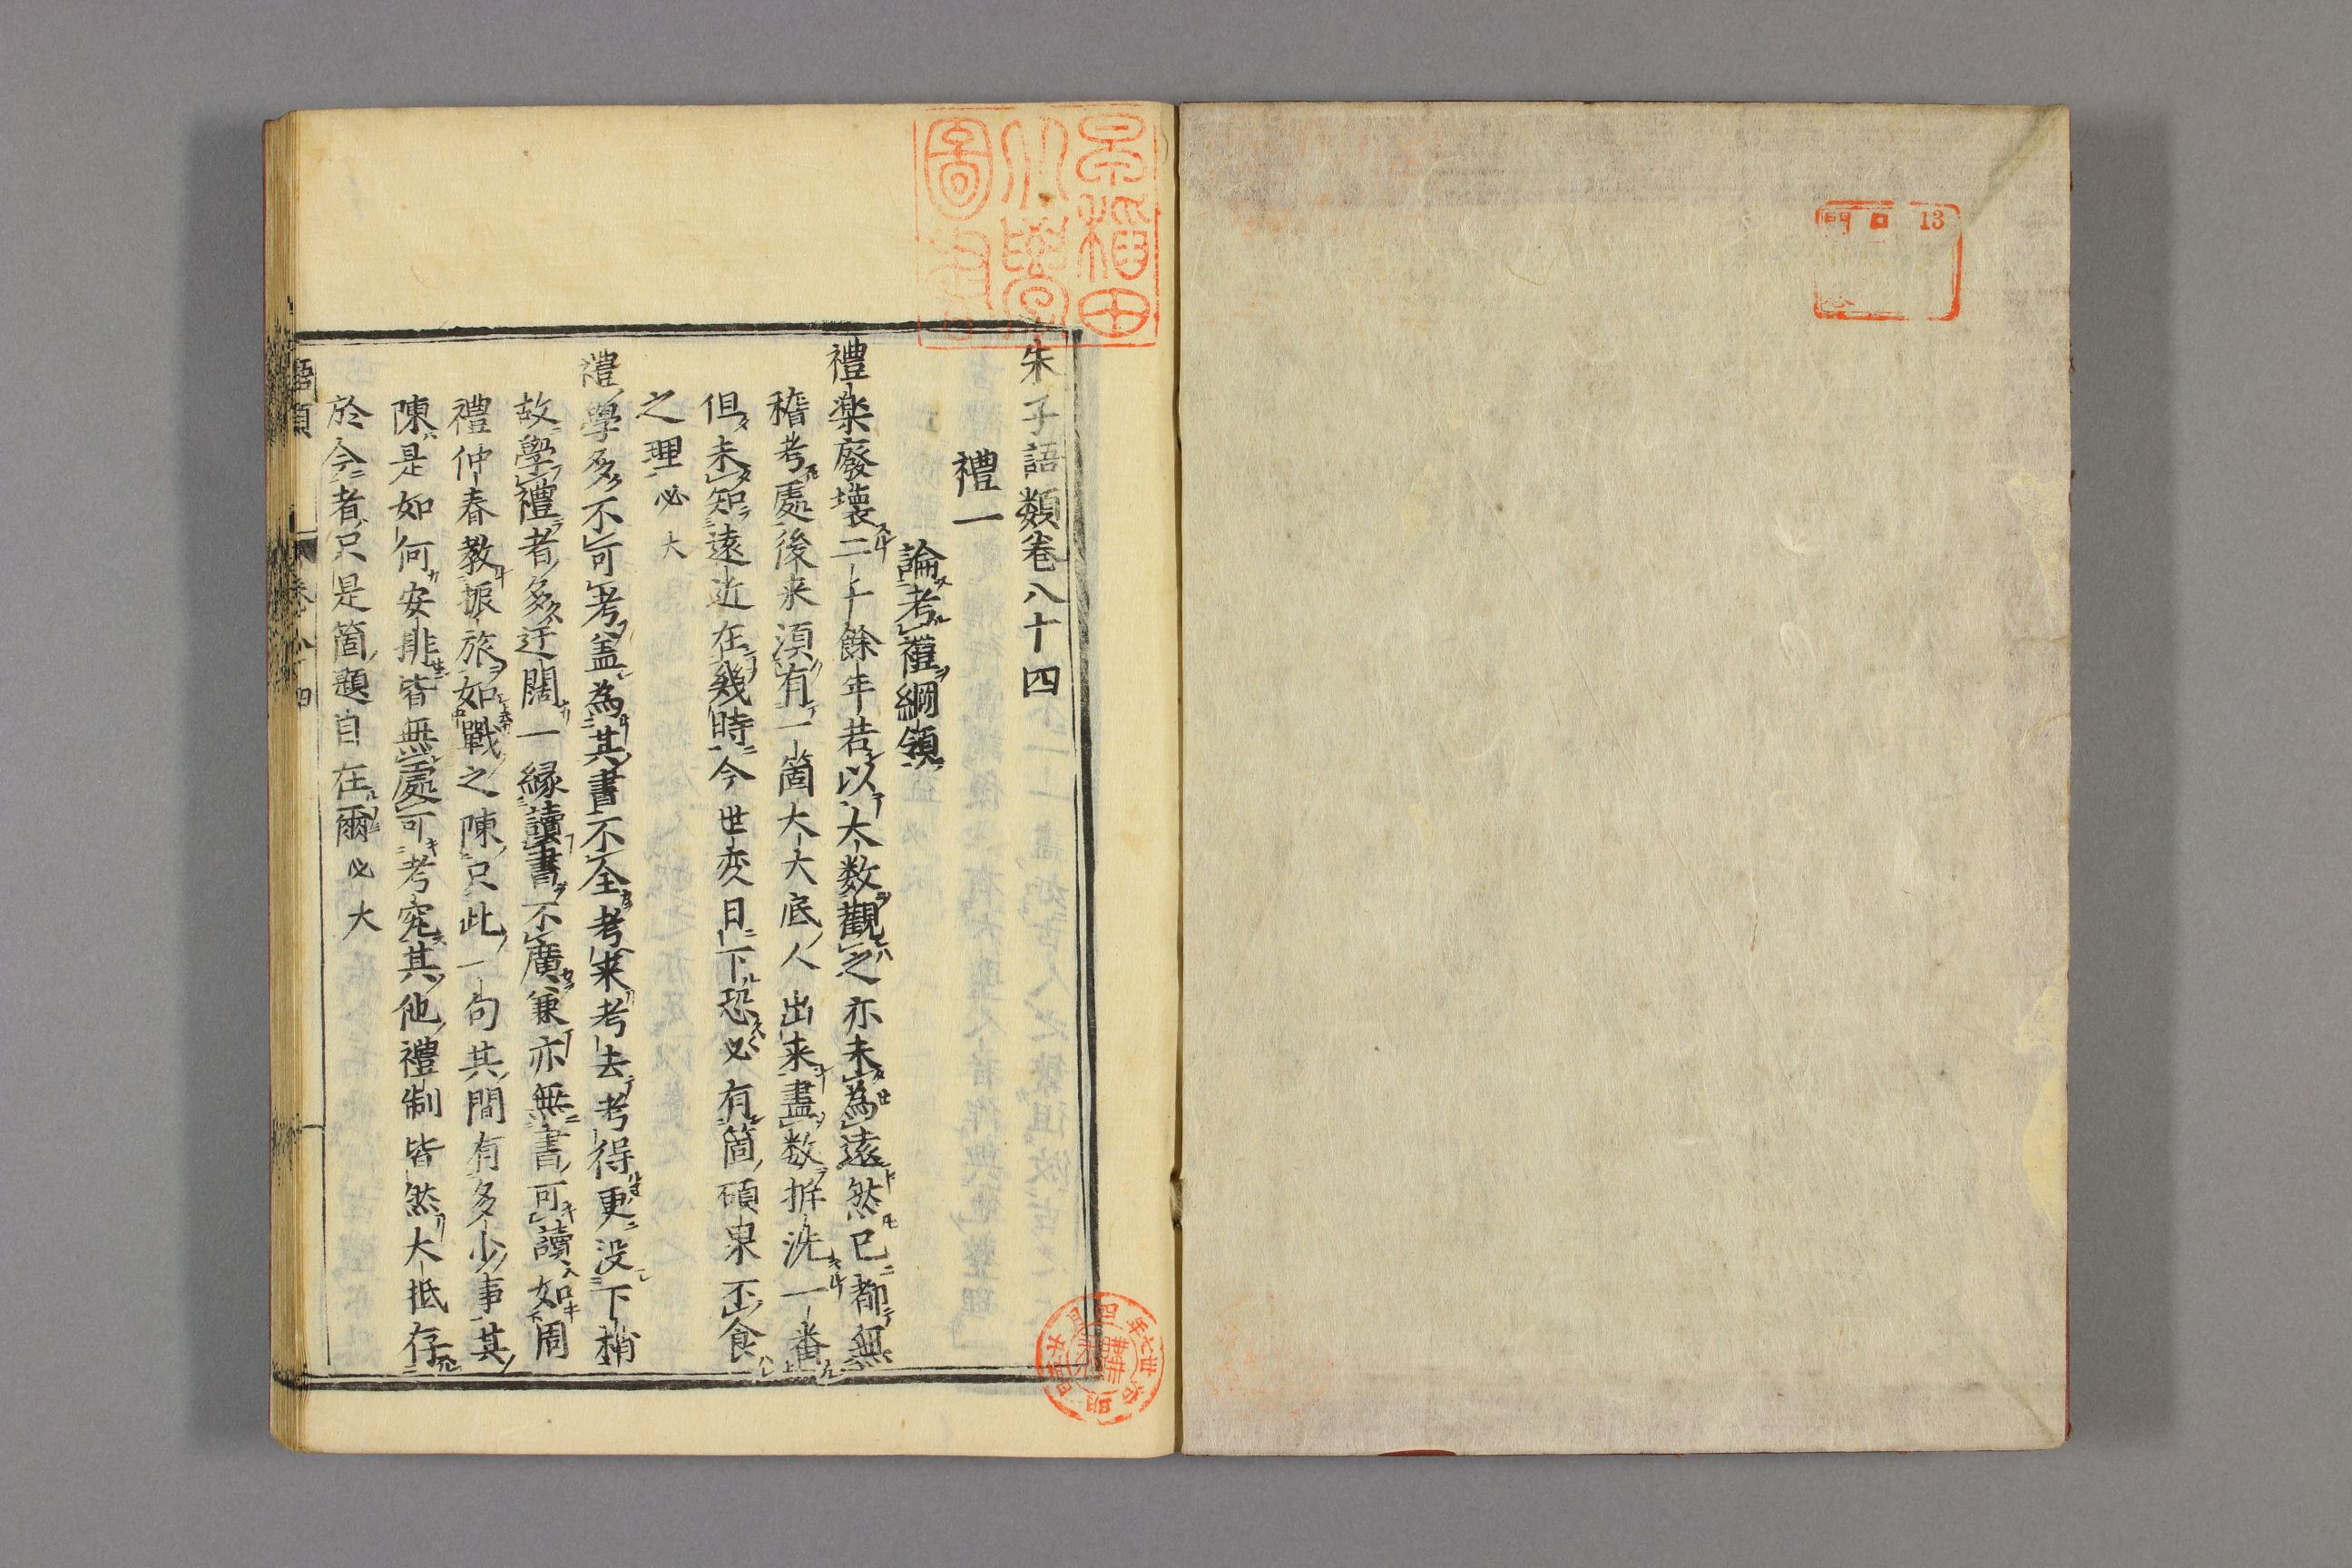 朱子語類卷八十四
禮一
論考禮綱領
禮楽廢壊二千餘年若以大数觀之亦未為遠然已都無
稽考處後来湏有一箇大大底人出来盡数拆洗一番
但未知遠近在幾時今世変日下恐必有箇碩果不食
之理必大
禮學多不可考盖為其書不全考来考去考得更没下梢
故學禮者多迂闊一縁讀書不廣兼亦無書可讀如周
禮仲春教振旅如戰之陳只此一句其間有多少事其
陳是如何安排皆無處可考究其他禮制皆然大抵存
於今者只是箇題目在爾必大
語類 卷八十四
早稲田
大學
圖書
門 口 13